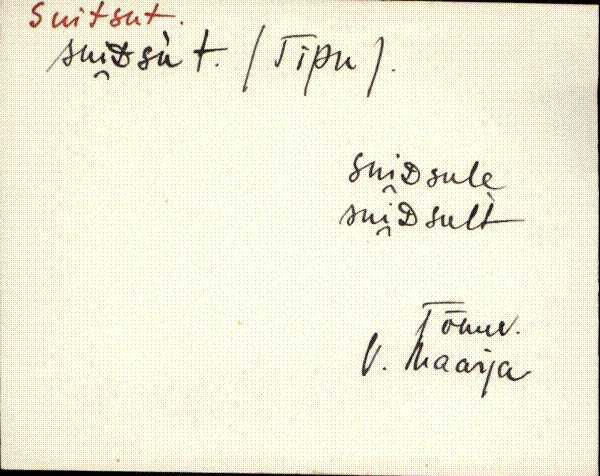 Suitsut.
sui̯Dsùt. (Tipu).
sui̯Dsulè
sui̯Dsult
Tõnuv.
V. Maarja